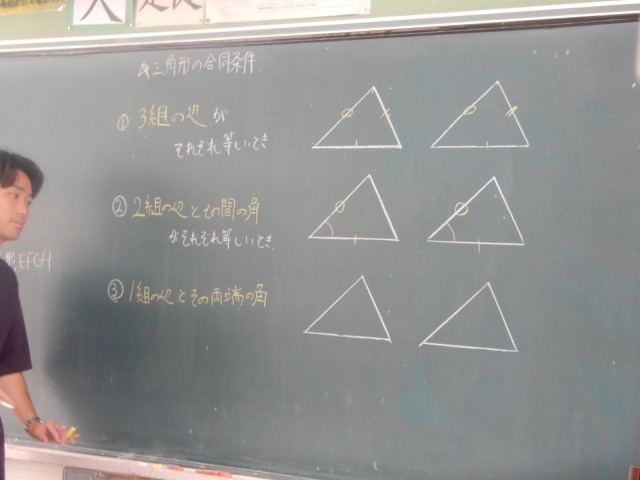 三角形の合同条件
① 3組の辺が
それぞれ等しいとき
② 2組の辺とその間の角
がそれぞれ等しいとき
③ 1組の辺とその両端の角
形EFGH